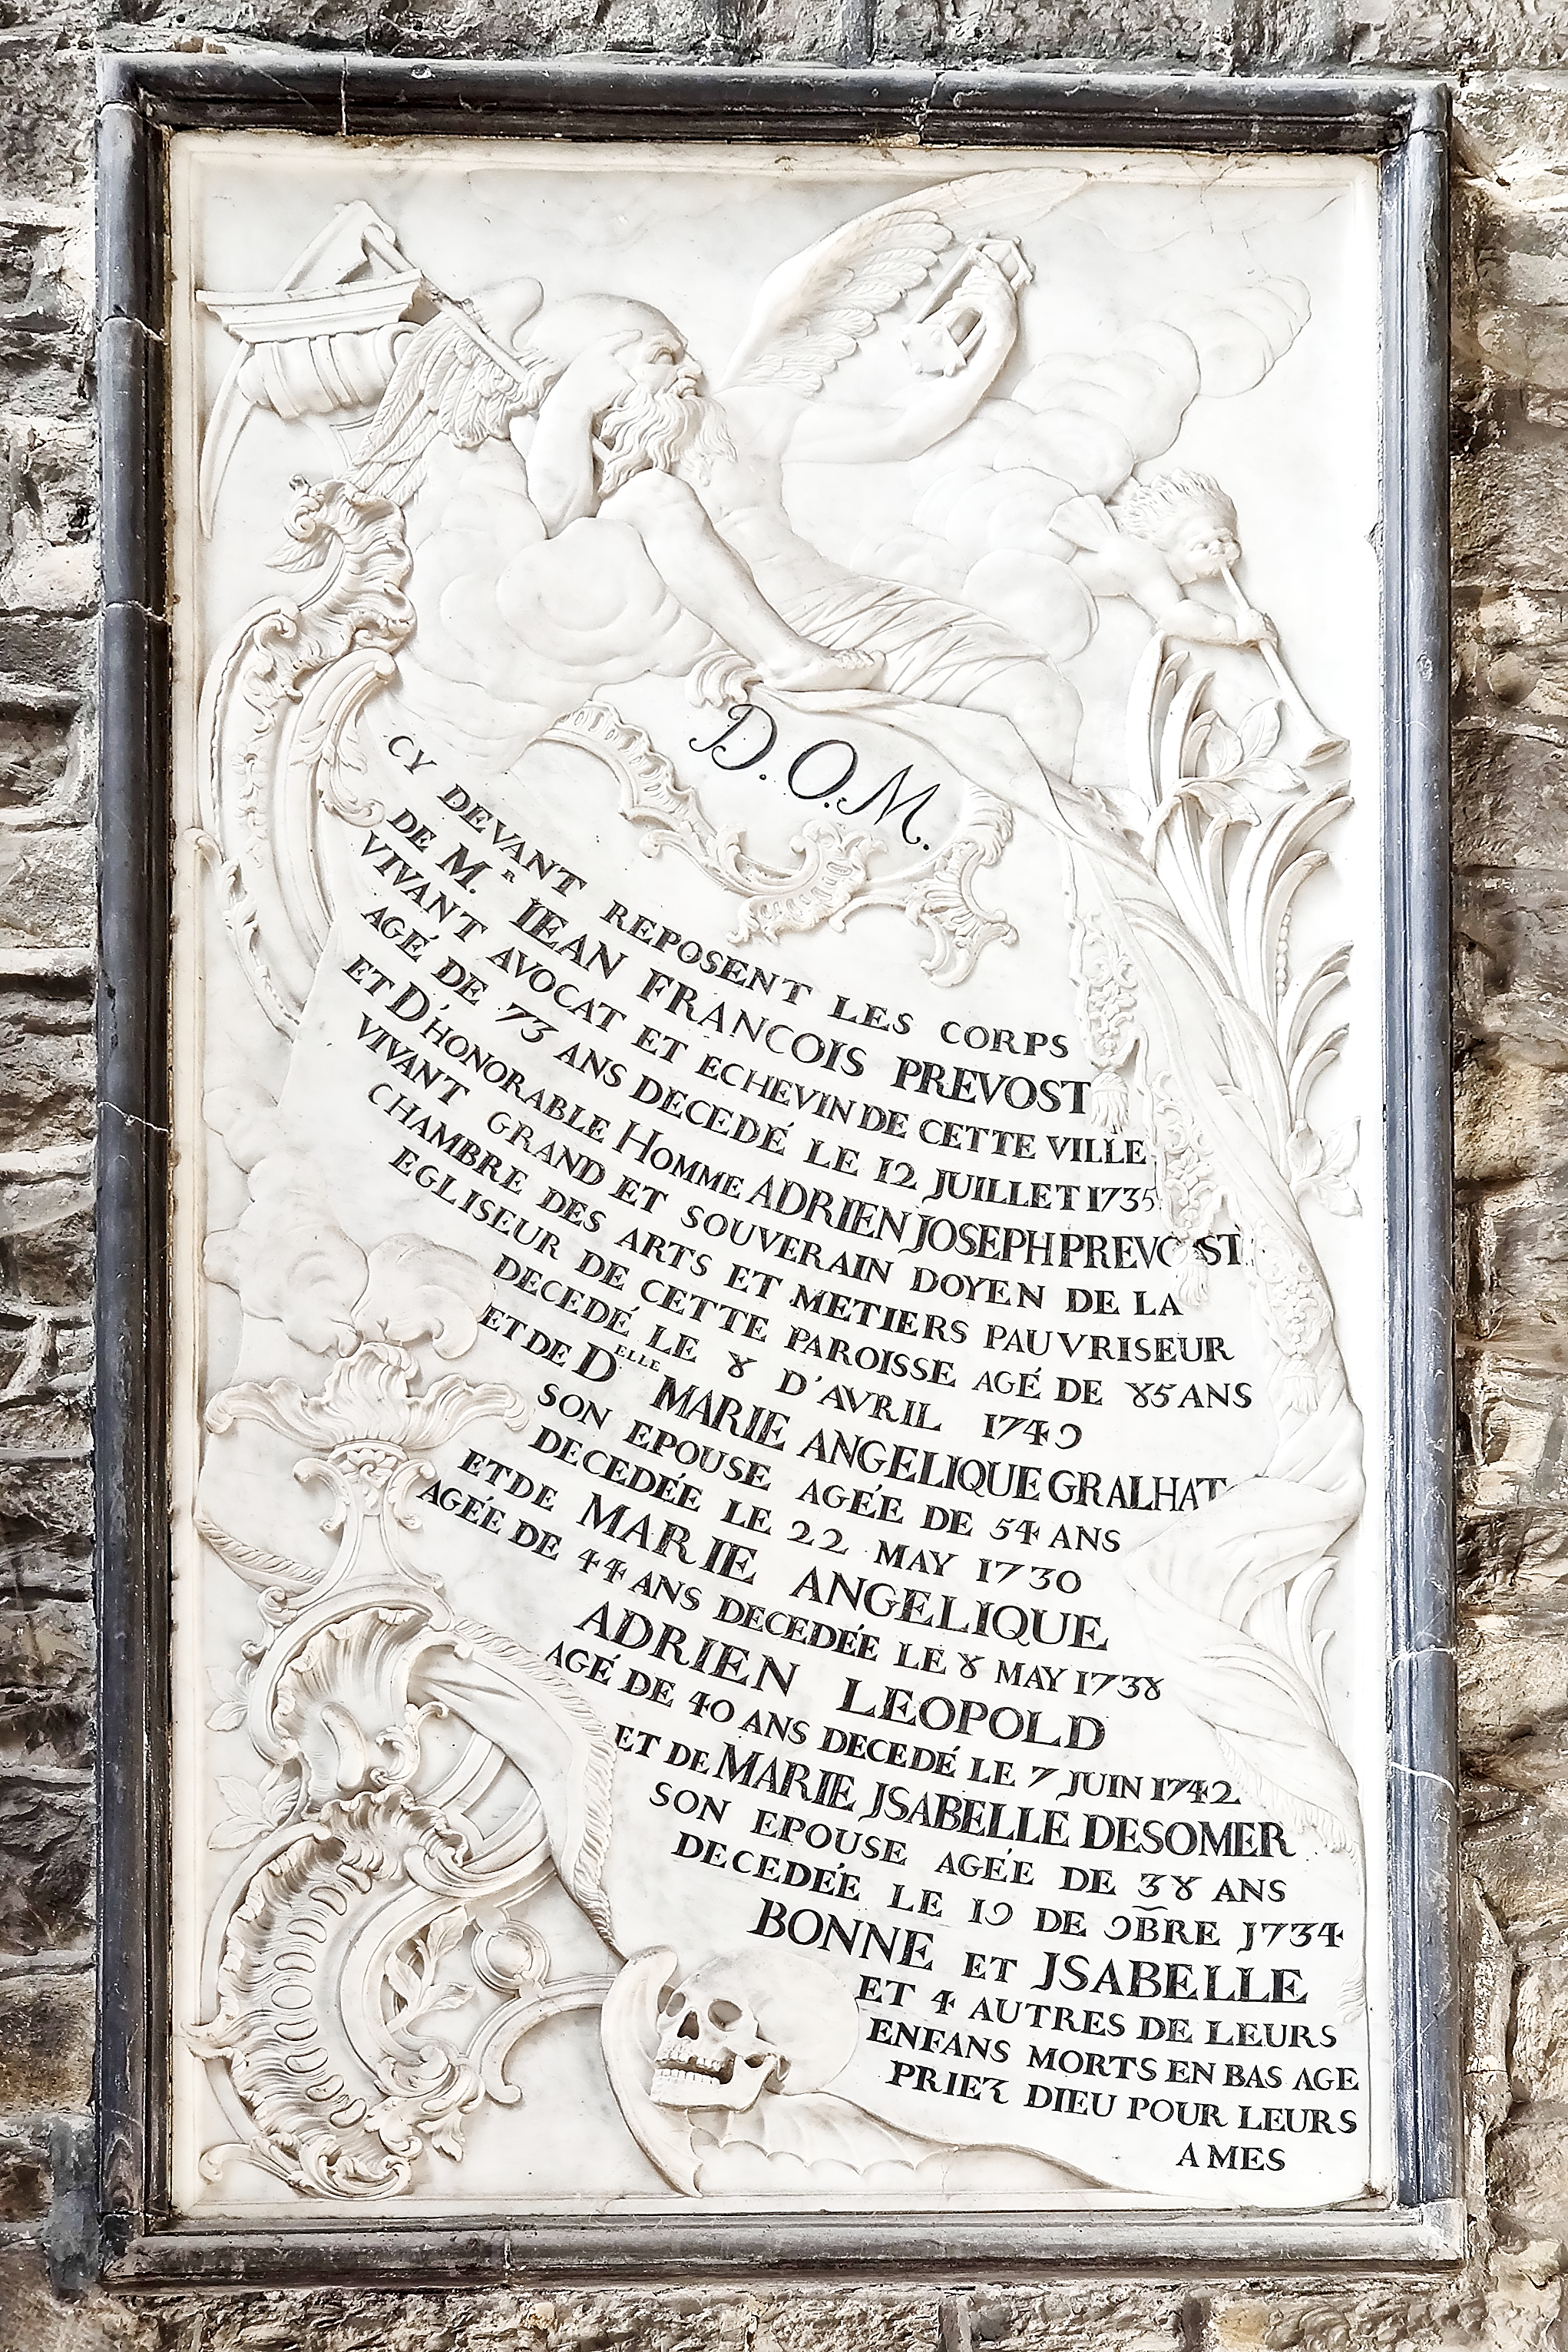 D.O.M.
CY DEVANT REPOSENT LES CORPS
DE M.R IEAN FRANCOIS PREVOST
VIVANT AVOCAT ET ECHEVIN DE CETTE VILLE
AGÉ DE 73 ANS DECEDÉ LE 12 JUILLET 1735
ET D'HONORABLE HOMME ADRIEN JOSEPH PREVOST
VIVANT GRAND ET SOUVERAIN DOYEN DE LA
CHAMBRE DES ARTS ET METIERS PAUVRISEUR
EGLISEUR DE CETTE PAROISSE AGÉ DE 85 ANS
DECEDÉ LE 8 D'AVRIL 1749
ET DE DELLE MARIE ANGELIQUE GRALHAT
SON EPOUSE AGÉE DE 54 ANS
DECEDÉE LE 22 MAY 1730
ET DE MARIE ANGELIQUE
AGÉE DE 44 ANS DECEDÉE LE 8 MAY 1738
ADRIEN LEOPOLD
AGÉ DE 40 ANS DECEDÉ LE 7 JUIN 1742
ET DE MARIE JSABELLE DESOMER
SON EPOUSE AGÉE DE 38 ANS
DECEDÉE LE 19 DE 9BRE 1734
BONNE ET JSABELLE
ET 4 AUTRES DE LEURS
ENFANS MORTS EN BAS AGE
PRIEZ DIEU POUR LEURS
AMES